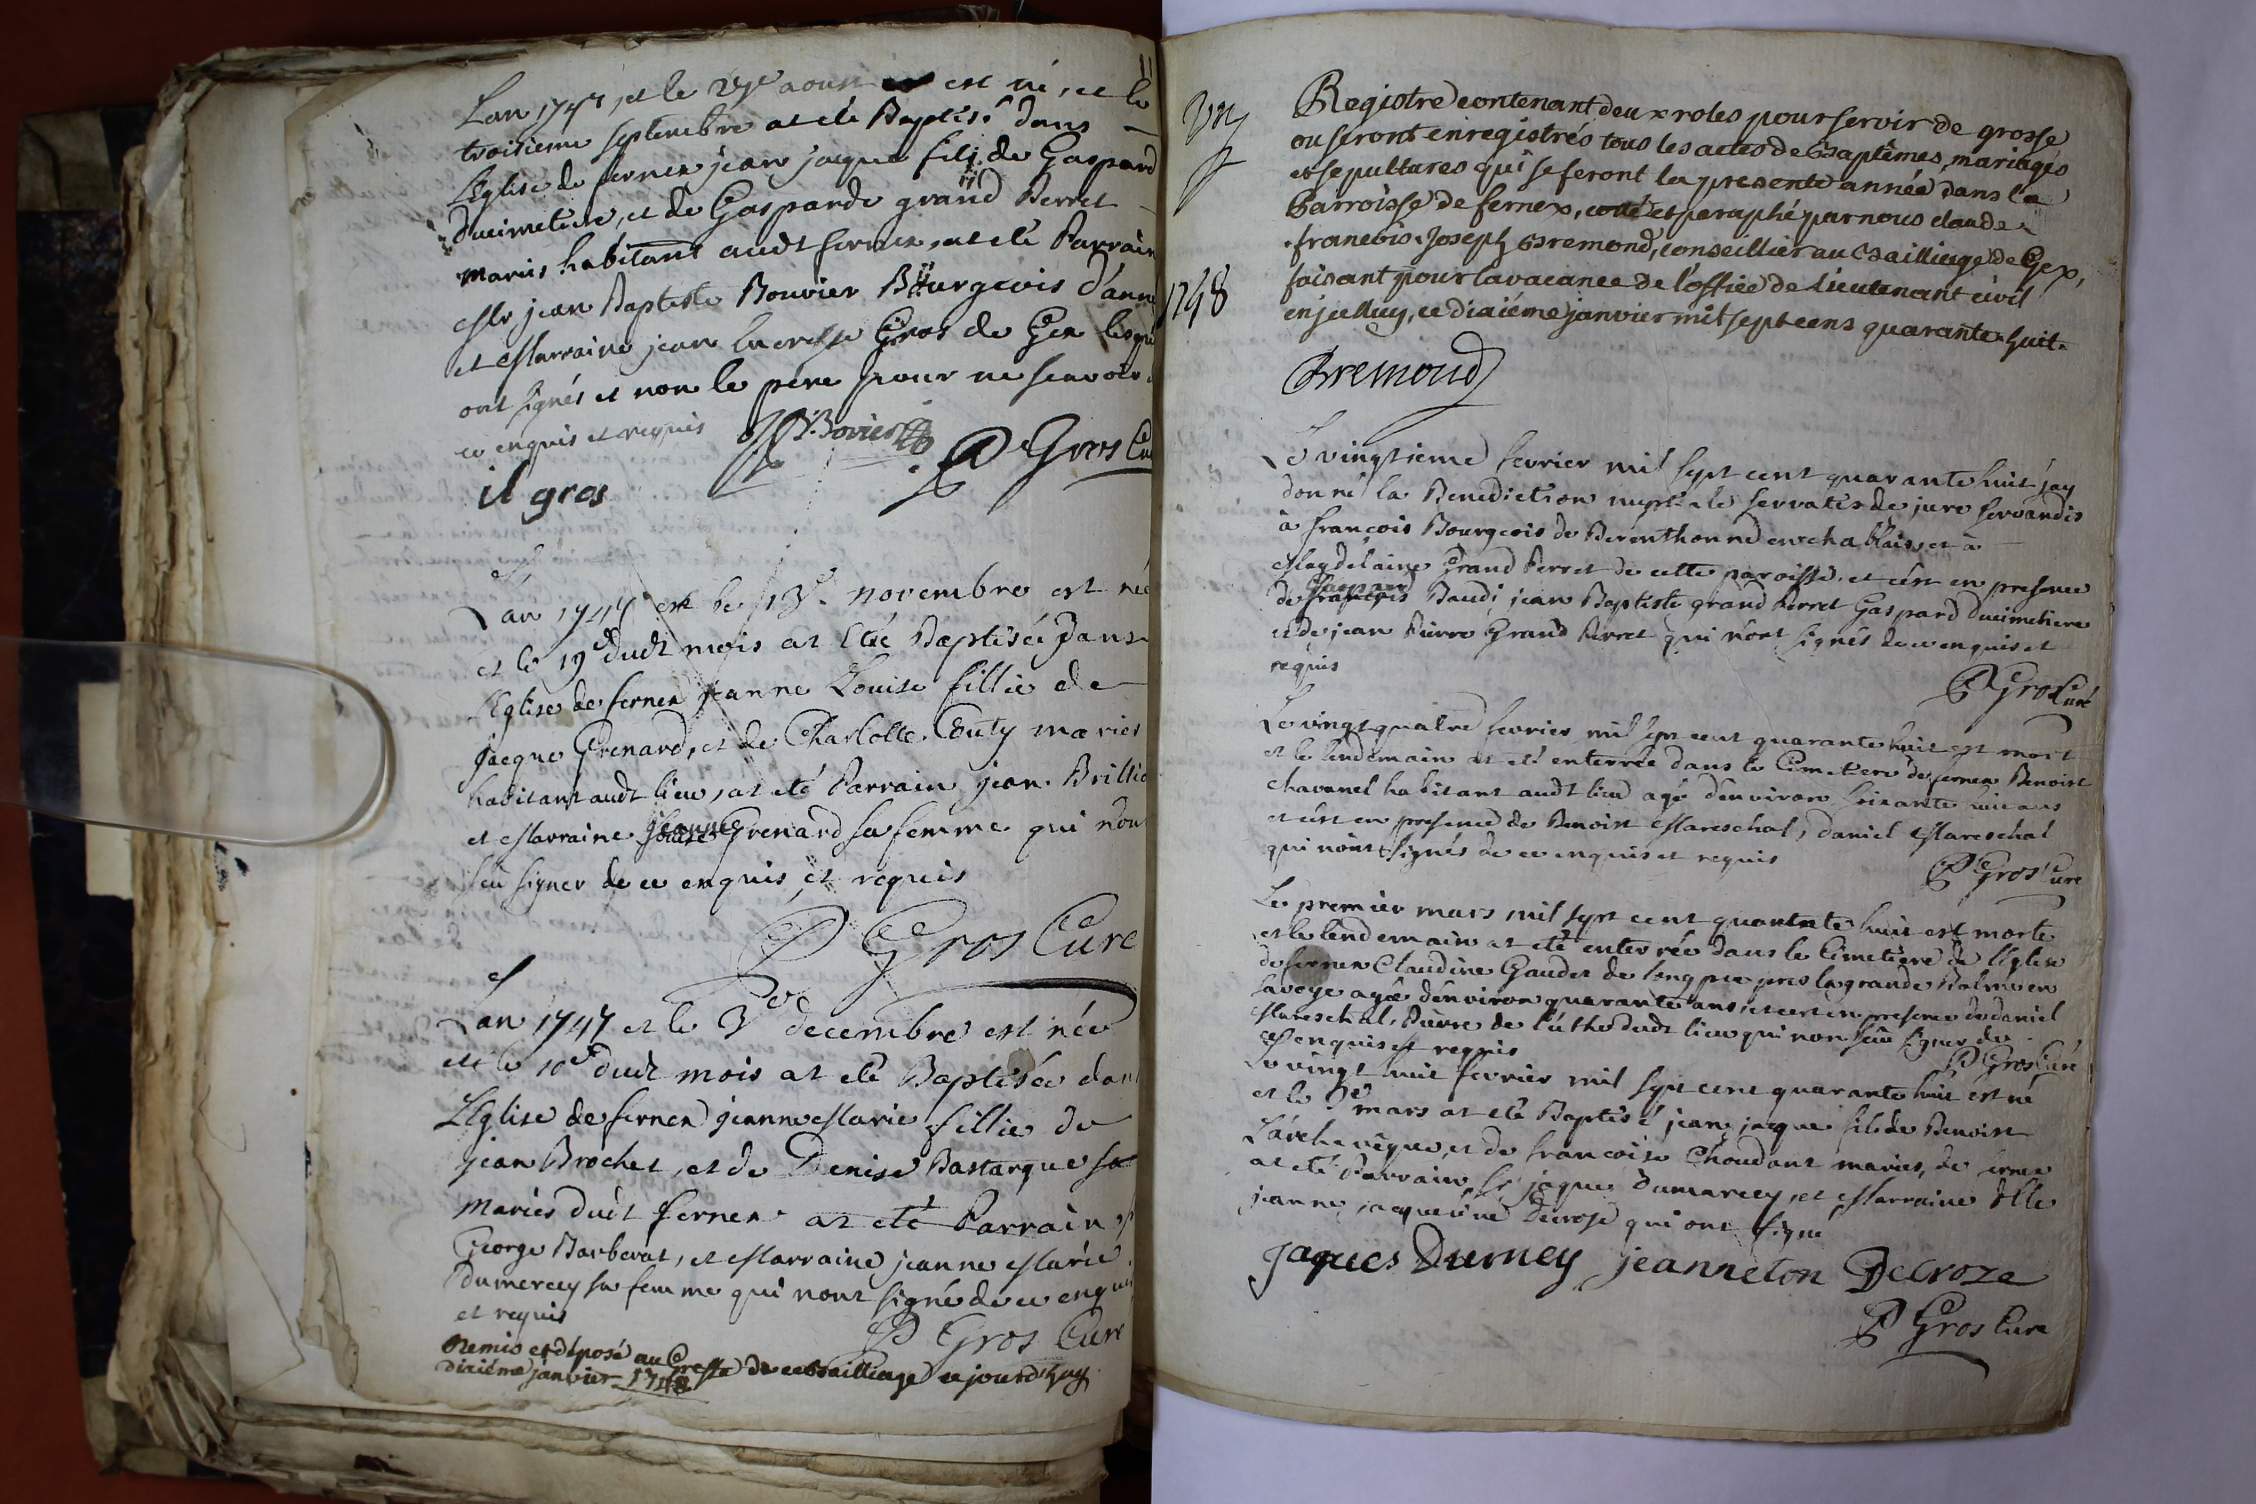 Lan 1747, et le 29e aoust est né, et le
troisieme septembre at eté Baptisé dans
l'Eglise de fernex jean jacque fils de Gaspard
Ducimetiere, et de Gasparde grand Perret
mariés habitant audt fernex, at eté Parrain
Mr jean Baptiste Bouvier Bourgeois d'anne
et Marraine jean lucresse Gros de Gex lesque
ont signés et non le pere pour ne scavoir
ce enquis et requis J B Bovier P Gros Cu
il gros
Lan 1747 et le 13e novembre est née
et le 19e dudt mois at Eté Baptisée dans
l'Eglise de fernex jeanne Louise fillie de
jacque Grenard, et de Charlotte Couty mariés
habitant audt lieu, at eté Parrain jean Brillie
et Marraine jeanne Grenard sa femme qui n'ont
sçu signer de ce enquis et requis
P Gros Curé
Lan 1747 et le 3e decembre est née
et le 10e dudt mois at eté Baptisée dans
l'Eglise de fernex jeanne Marie fillie de
jean Brochet, et de Denise Bastarque sa
mariés dudt fernex at eté Parrain
George Barberat, et Marraine jeanne Marie
Dumercey sa femme qui n'ont signé de ce enquis
et requis
P Gros Curé
Remis et déposé au Greffe de ce Bailliage ce jourd'huy
dixiéme janvier 1748
11
Un
Registre contenant deux roles pour servir de grosse
ou seront enregistrés tous les actes de Baptêmes, mariages
et sepultures qui se feront la presente année dans la
Parroisse de fernex, cotté et paraphé par nous claude
francois Joseph Bremond, conseillier au Bailliage de Gex,
faisant pour la vacance de l'office de Lieutenant civil
1748
en jcelluy, ce dixiéme janvier mil sept cens quarante huit.
Bremond
Le vingtieme fevrier mil sept cent quarante huit j'ay
donné la Benediction nuptiale servatis de jure servandis
à françois Bourgeois de Berenthonne en chablais, et à
Magdelaine Grand Perret de cette paroisse, et c'est en presence
Gaspard
de françois Baudi jean Baptiste grand Perret Gaspard Ducimetiere
et de jean Pierre Grand Perret qui n'ont signés de ce enquis et
requis
P Gros Curé
Le vingt quatre fevrier mil sept cent quarante huit est mort
et le lendemain at eté enterrée dans le Cimetiere de fernex Benoist
chavanel habitant audt lieu agé d'environ soixante huit ans
et c'est en presence de Benoist Mareschal, Daniel Mareschal
qui n'ont signés de ce enquis et requis
P Gros Curé
Le premier mars mil sept cent quarante huit est morte
et le lendemain at eté enterrée dans le Cimetiere de l'Eglise
de fernex Claudine Gaudet de long pre pres la grande Balme en
savoye agée d'environ quarante ans, et c'est en presence de daniel
Mareschal, Pierre de l'uthe dudt lieu qui n'on sceu signer de
ce enquis et requis
P Gros Curé
Le vingt huit fevrier mil sept cent quarante huit est né
et le 3e mars at eté Baptisé jean jacque fils de Benoist
L'archeveque, et de francoise Choudant mariés, de fernex
at eté Parrain Sr jaque Dumarcey, et Marraine Dlle
jeanne jacqueline Decroze qui ont signé
Jaques Dumey jeanneton Decroze
P Gros Curé